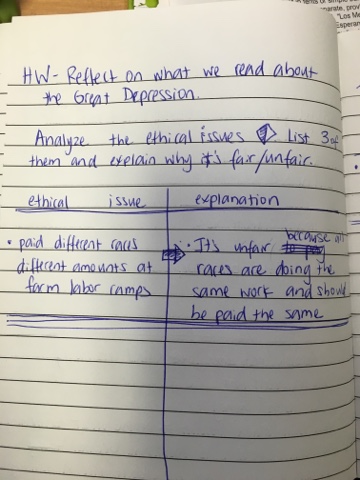 HW- Reflect on what we read about
the Great Depression.
Analyze the ethical issues List 3 of
them and explain why it's fair/unfair.
ethical issue explanation
• paid different races
different amounts at
farm labor camps
• It's unfair because all
races are doing the
same work and should
be paid the same
"Los Me
Esperan